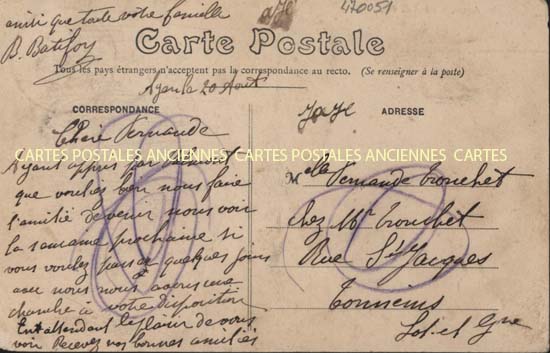 amiti que toute votre famille
B. Batifoy
aJE
470051
Carte Postale
Tous les pays étrangers n'acceptent pas la correspondance au recto. (Se renseigner à la poste)
le 20 Aout
CORRESPONDANCE
ADRESSE
Chère Fernande
CARTES POSTALES ANCIENNES CARTES POSTALES ANCIENNES CARTES
Ayant appris par
que vouliez bien nous faire
l'amitié de venir nous voir
la semaine prochaine si
vous voulez passer quelques jours
avec nous nous
chambre à votre disposition
En attendant le plaisir de vous
voir Recevez nos bonnes amitiés
Melle Fernande Trouchet
chez Mr Trouchet
Rue St Jacques
Tonneins
Lot et Gne